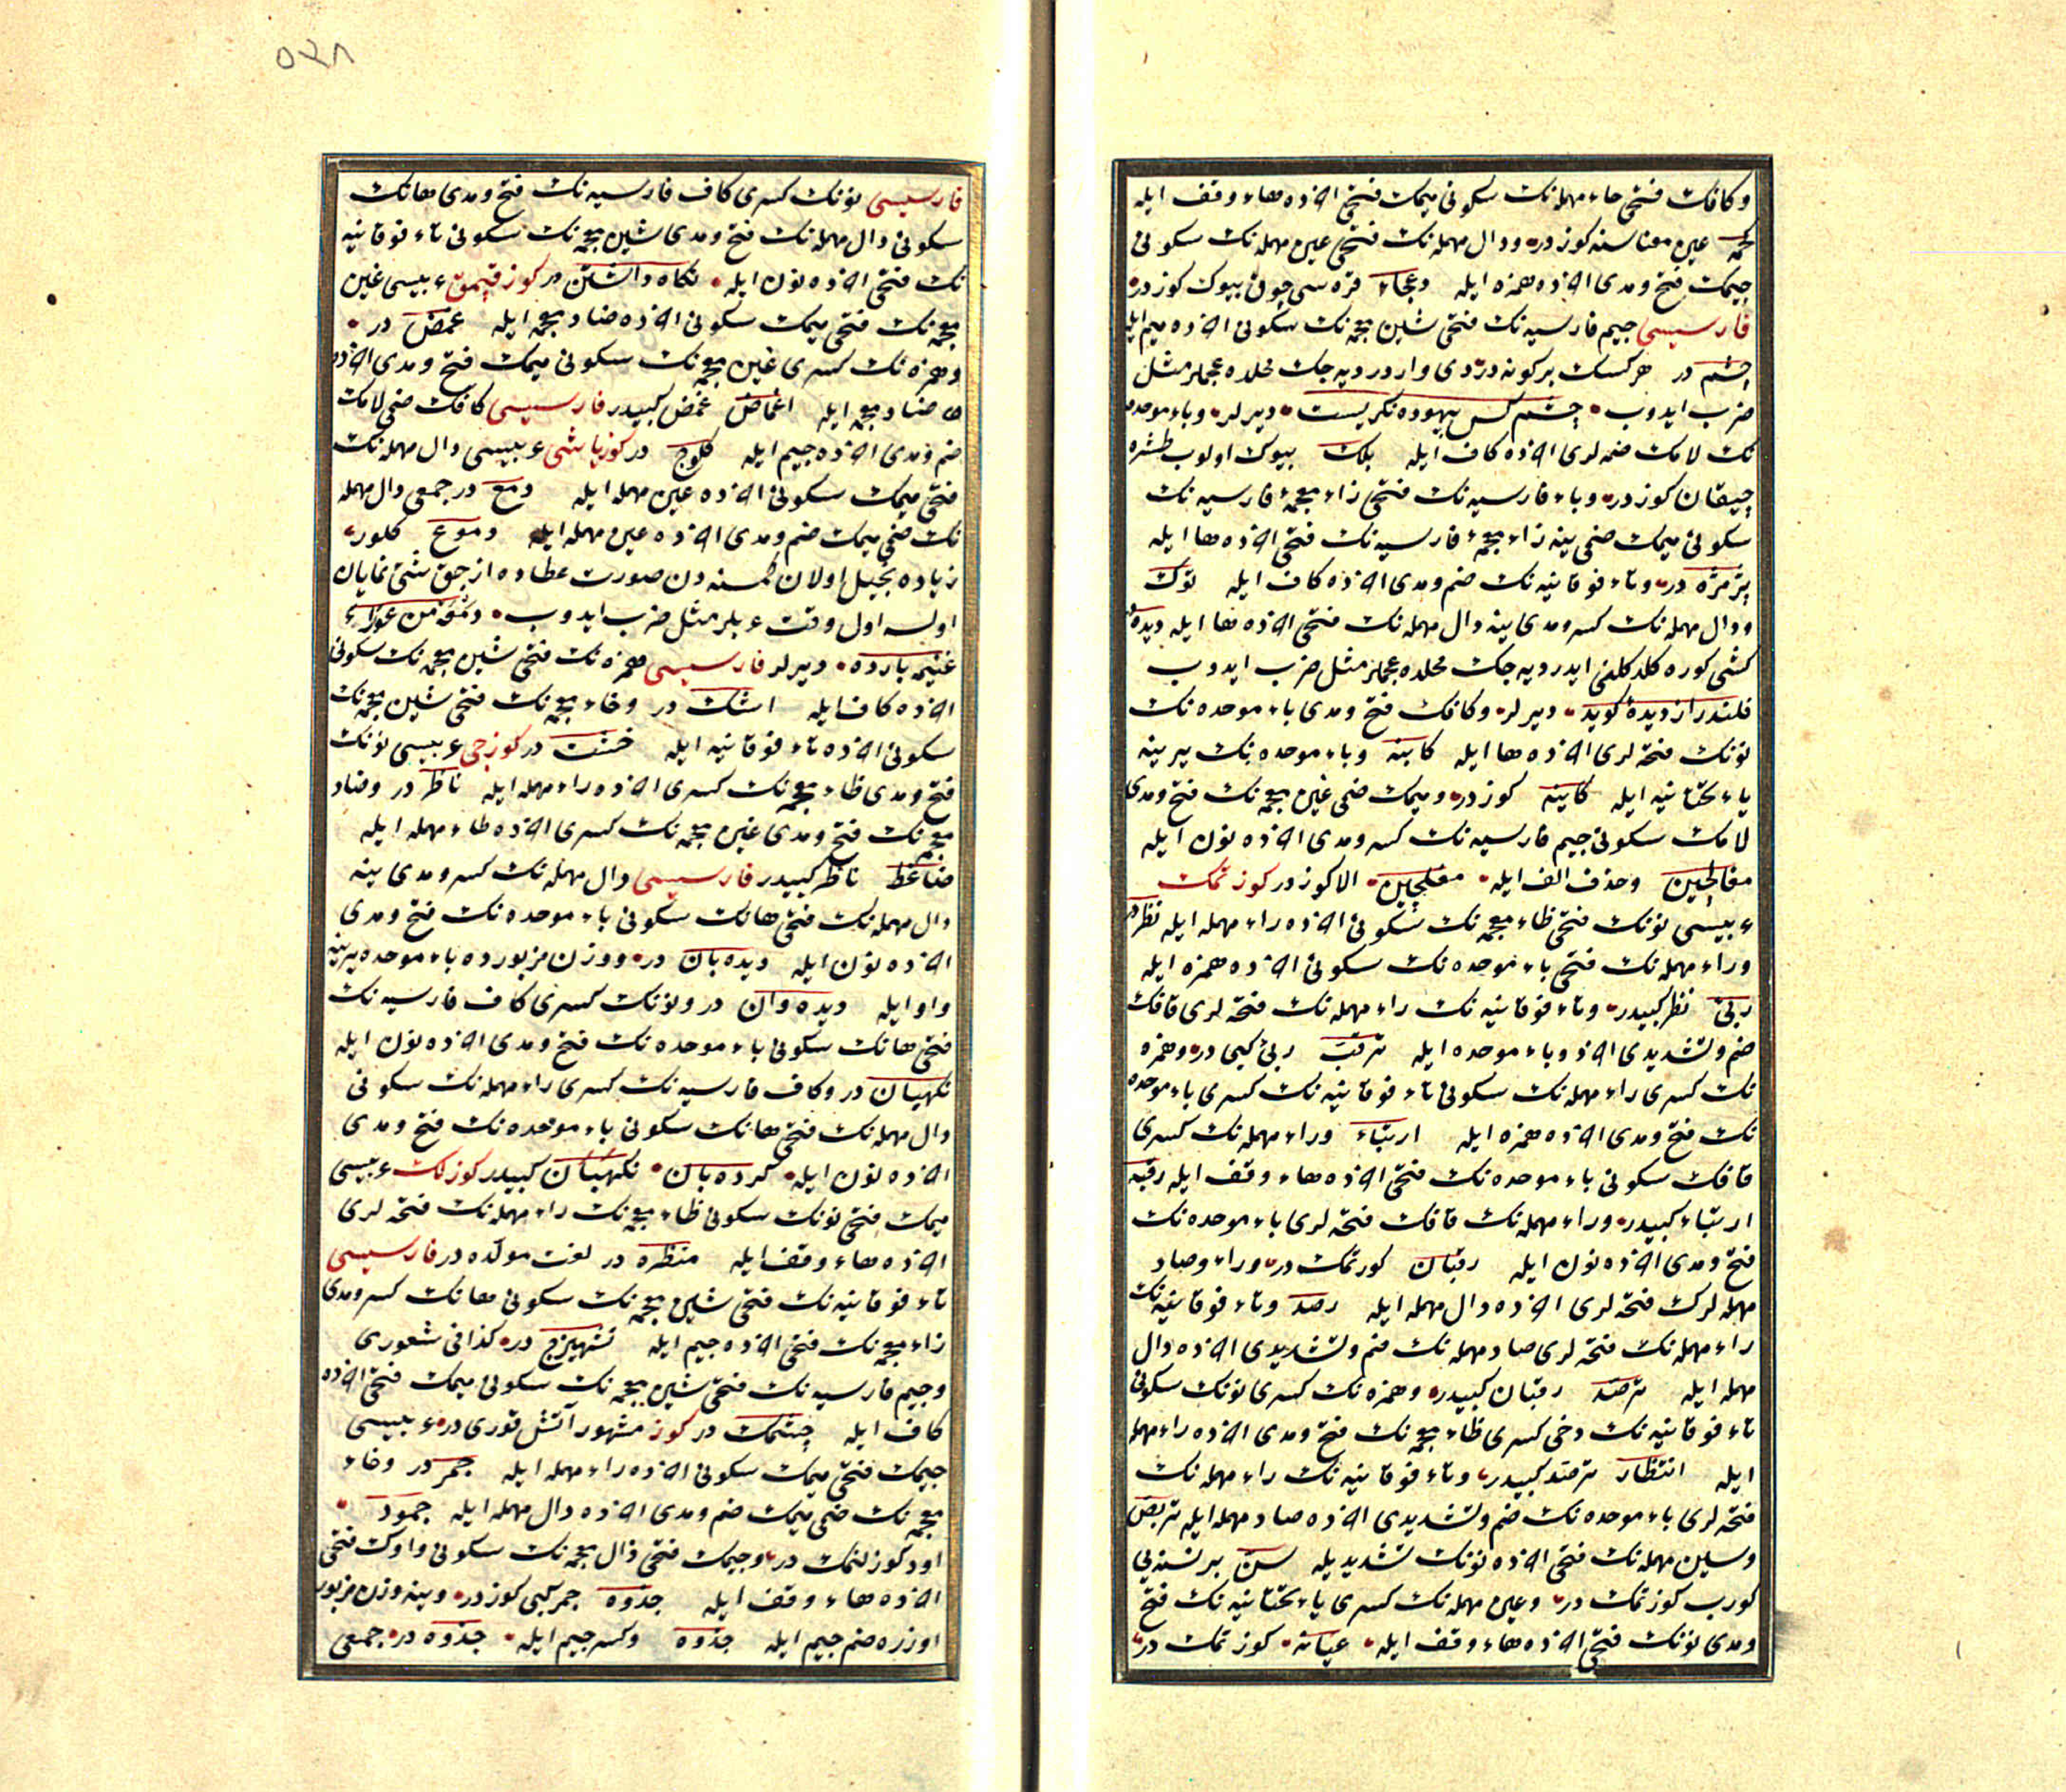 وكافك فتحى حاء مهمله نك سكونى ميمك فتحى آخرده هاء وقف ايله
كحمه عين معناسنه كوزدر ودال مهمله نك فتحى عين مهمله نك سكونى
جيمك فتح ومدى آخرده همزه ايله دعجاء قره سى چوق بيوك كوزدر
فارسيسى جيم فارسيه نك فتحى شين معجمه نك سكونى آخرده ميم ايله
چشم در هر كسك بر كونه دردى واردر ديه جك محلده عجملر مثل
ضرب ايدوب چشم كس بيهوده نكريست ديرلر وباء موحده
نك لامك ضمه لرى آخرده كاف ايله بلك بيوك اولوب طشره
چيقان كوزدر وباء فارسيه نك فتحى زاء معجمهٔ فارسيه نك
سكونى ميمك ضمى ينه زاء معجمهٔ فارسيه نك فتحى آخرده ها ايله
پژمژه در وتاء فوقانيه نك ضم ومدى آخرده كاف ايله توك
ودال مهمله نك كسر ومدى ينه دال مهمله نك فتحى آخرده ها ايله ديده در
كشى كوره كلد كلفنى ايدر ديه جك محلده عجملر مثل ضرب ايدوب
قلندر از ديده كويد ديرلر وكافك فتح ومدى باء موحده نك
نونك فتحه لرى آخرده ها ايله كابنه وباء موحده نك يرينه
ياء تحتانيه ايله كاينه كوزدر وميمك ضمى غين معجمه نك فتح ومدى
لامك سكونى جيم فارسيه نك كسر ومدى آخرده نون ايله
مغالچين وحذف الف ايله مغلچين الا كوزدر كوزتمك
عربيسى نونك فتحى ظاء معجمه نك سكونى آخرده راء مهمله ايله نظر در
وراء مهمله نك فتحى باء موحده نك سكونى آخرده همزه ايله
ربئ نظر كبيدر وتاء فوقانيه نك راء مهمله نك فتحه لرى قافك
ضم وتشديدى آخرده باء موحده ايله ترقب ربئ كبى در وهمزه
نك كسرى راء مهمله نك سكونى تاء فوقانيه نك كسرى باء موحده
نك فتح ومدى آخرده همزه ايله ارتباء وراء مهمله نك كسرى
قافك سكونى باء موحده نك فتحى آخرده هاء وقف ايله رقبه
ارتباء كبيدر وراء مهمله نك قافك فتحه لرى باء موحده نك
فتح ومدى آخرده نون ايله رقبان كوزتمك در وراء وصاد
مهمله لرك فتحه لرى آخرده دال مهمله ايله رصد وتاء فوقانيه نك
راء مهمله نك فتحه لرى صاد مهمله نك ضم وتشديدى آخرده دال
مهمله ايله ترصد رقبان كبيدر وهمزه نك كسرى نونك سكونى
تاء فوقانيه نك دخى كسرى ظاء معجمه نك فتح ومدى آخرده راء مهمله
ايله انتظار ترصد كبيدر وتاء فوقانيه نك راء مهمله نك
فتحه لرى باء موحده نك ضم وتشديدى آخرده صاد مهمله ايله تربص
وسين مهمله نك فتحى آخرده نونك تشديديله سن بر نسنه يى
كورب كوزتمك در وعين مهمله نك كسرى ياء تحتانيه نك فتح
ومدى نونك فتحى آخرده هاء وقف ايله عيانه كوزتمك در
٥٢٨
فارسيسى نونك كسرى كاف فارسيه نك فتح ومدى هانك
سكونى دال مهمله نك فتح ومدى شين معجمه نك سكونى تاء فوقانيه
نك فتحى آخرده نون ايله نكاه داشتن در كوز قپمق عربيسى غين
معجمه نك فتحى ميمك سكونى آخرده ضاد معجمه ايله غمض در
وهمزه نك كسرى غين معجمه نك سكونى ميمك فتح ومدى آخرده
ضاد معجمه ايله اغماض غمض كبيدر فارسيسى كافك ضمى لامك
ضم ومدى آخرده جيم ايله كلوج در كوز ياشى عربيسى دال مهمله نك
فتحى ميمك سكونى آخرده عين مهمله ايله دمع در جمعى دال مهمله
نك ضمى ميمك ضم ومدى آخرده عين مهمله ايله دموع كلور
زياده بخيل اولان كمسنه دن صورت عطاده از جق شئ نمايان
اولسه اول وقت عربلر مثل ضرب ايدوب دمعة من عوراء
غنيمة بارده ديرلر فارسيسى همزه نك فتحى شين معجمه نك سكونى
آخرده كاف ايله اشك در وخاء معجمه نك فتحى شين معجمه نك
سكونى آخرده تاء فوقانيه ايله خشت در كوزجى عربيسى نونك
فتح ومدى ظاء معجمه نك كسرى آخرده راء مهمله ايله ناظر در وضاد
معجمه نك فتح ومدى غين معجمه نك كسرى آخرده طاء مهمله ايله
ضاغط ناظر كبيدر فارسيسى دال مهمله نك كسر ومدى ينه
دال مهمله نك فتحى هانك سكونى باء موحده نك فتح ومدى
آخرده نون ايله ديده بان در ووزن مزبورده باء موحده يرينه
واو ايله ديده وان در ونونك كسرى كاف فارسيه نك
فتحى هانك سكونى باء موحده نك فتح ومدى آخرده نون ايله
نكهبان در وكاف فارسيه نك كسرى راء مهمله نك سكونى
دال مهمله نك فتحى هانك سكونى باء موحده نك فتح ومدى
آخرده نون ايله كرده بان نكهبان كبيدر كوزلك عربيسى
ميمك فتحى نونك سكونى ظاء معجمه نك راء مهمله نك فتحه لرى
آخرده هاء وقف ايله منظره در لغت مولده در فارسيسى
تاء فوقانيه نك فتحى شين معجمه نك سكونى هانك كسر ومدى
زاء معجمه نك فتحى آخرده جيم ايله تشهيزج در كذا فى شعورى
وجيم فارسيه نك فتحى شين معجمه نك سكونى ميمك فتحى آخرده
كاف ايله چشمك در كوز مشهور آتش قورى در عربيسى
جيمك فتحى ميمك سكونى آخرده راء مهمله ايله جمر در وخاء
معجمه نك ضمى ميمك ضم ومدى آخرده دال مهمله ايله خمود
اود كوزلنمك در وجيمك فتحى ذال معجمه نك سكونى واوك فتحى
آخرده هاء وقف ايله جذوه جمر كبى كوزدر وينه وزن مزبور
اوزره ضم جيم ايله جذوه وكسر جيم ايله جذوه در جمعى